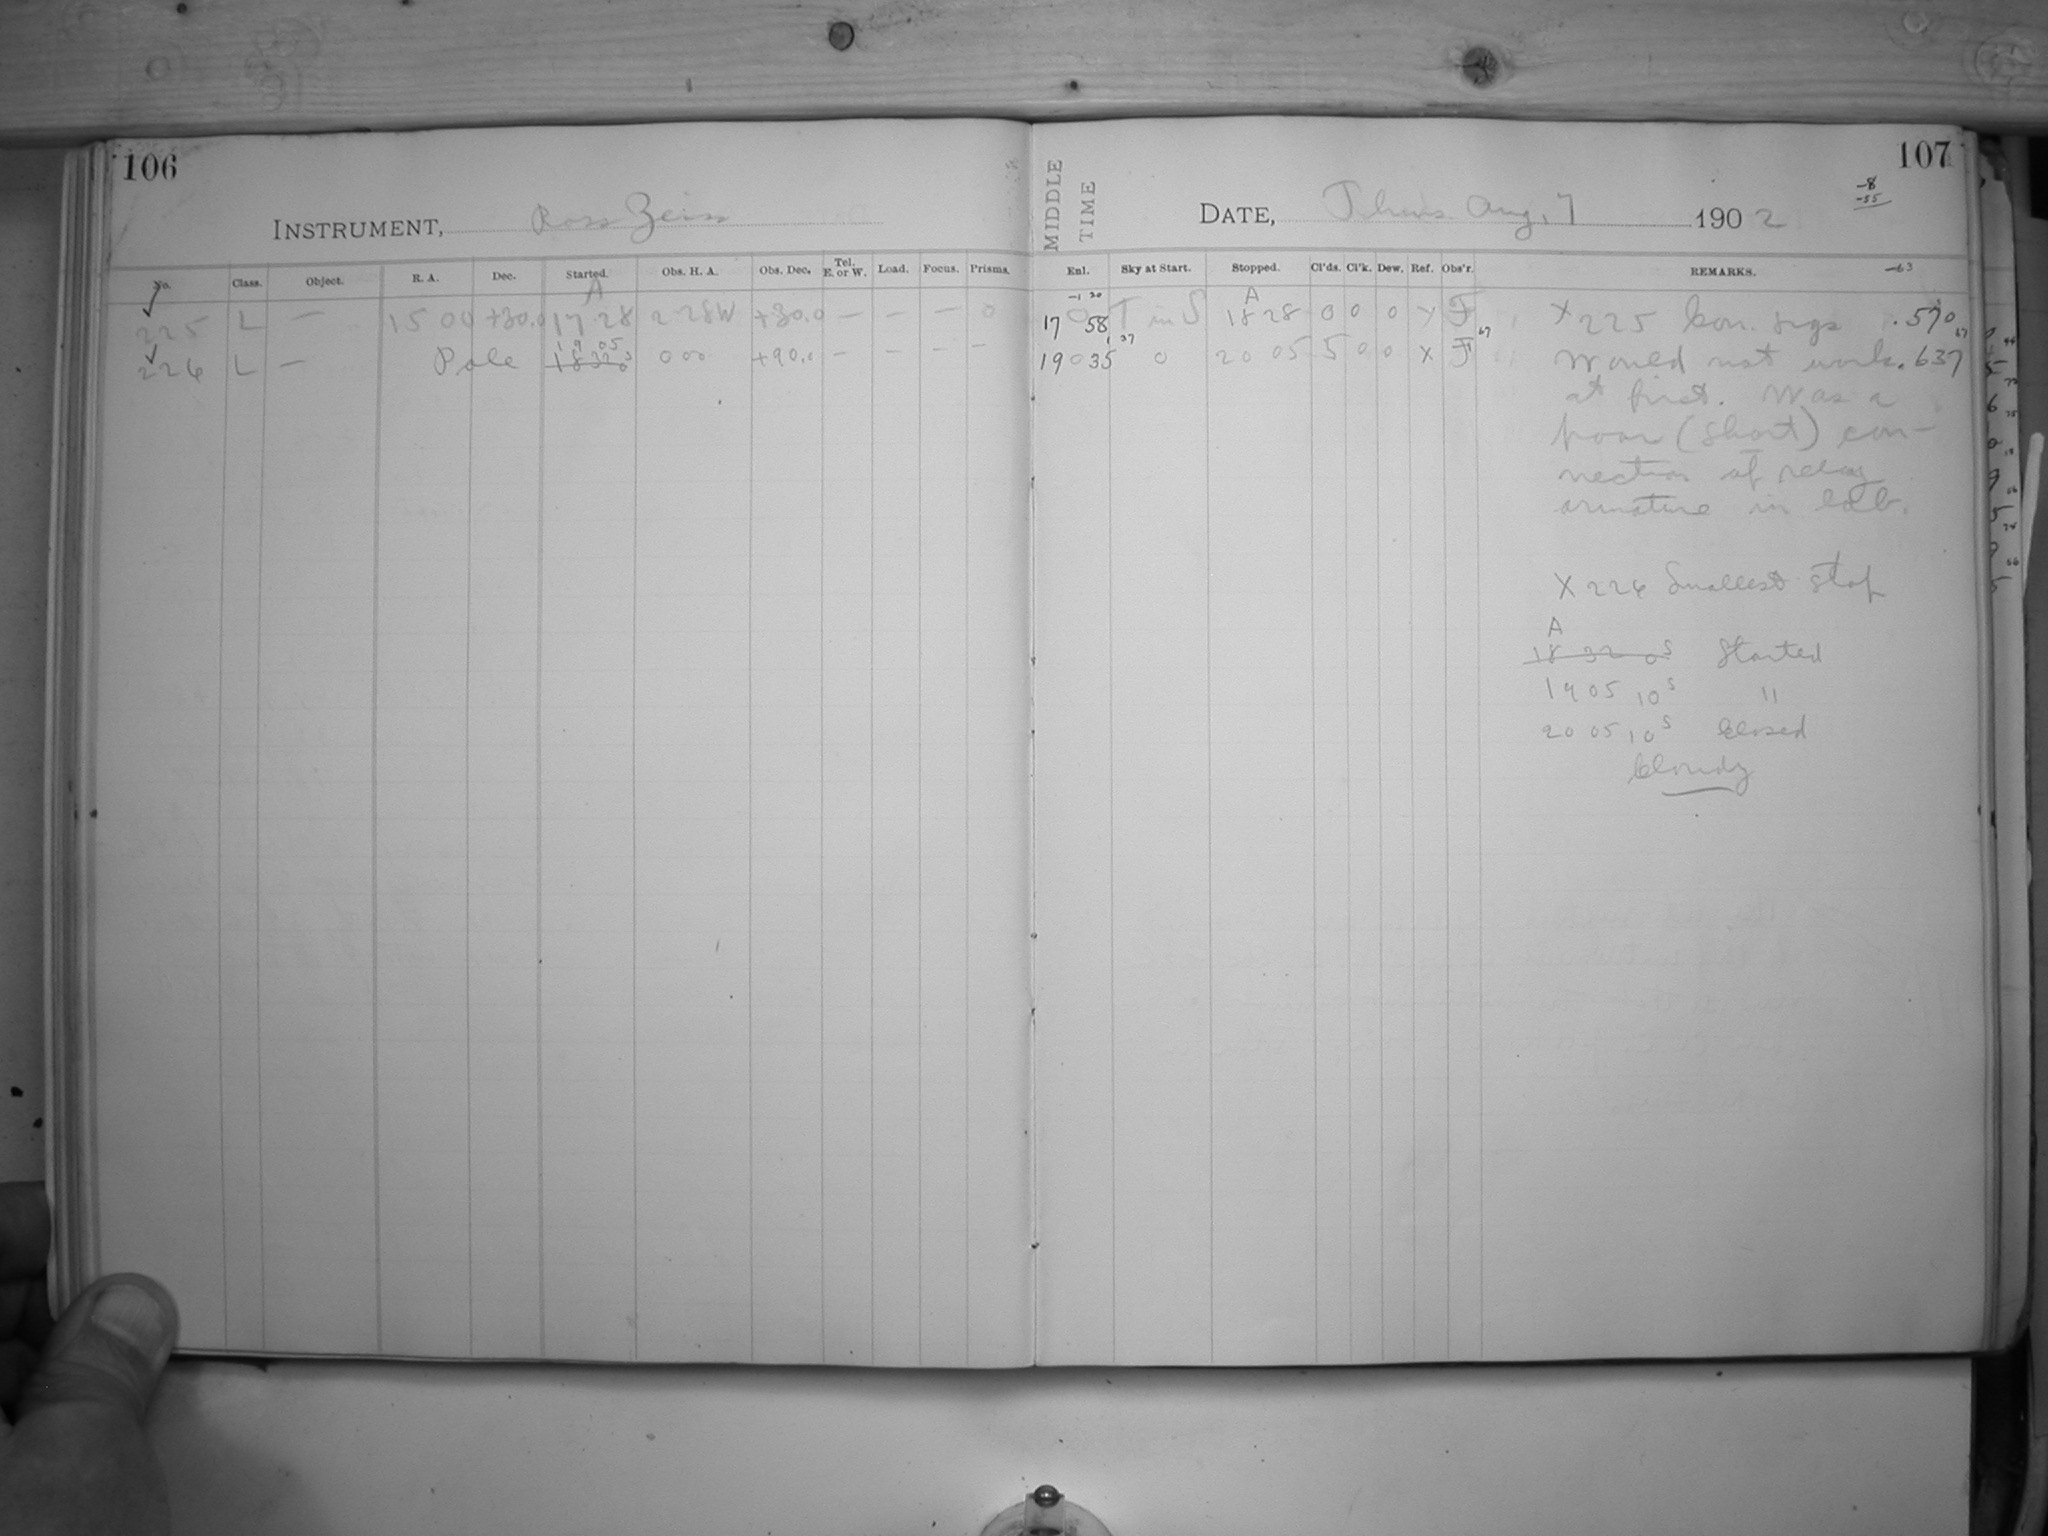 106
INSTRUMENT, Ross Zeiss
No. Class. Object. R. A. Dec. Started. Obs. H. A. Obs. Dec. Tel. E. or W. Load. Focus. Prisms.
A
225 L — 15 00 +30.0 17 28 2 28W +30.0 — — — 0
19 05
226 L — Pole 18 32 0 000 +90.0 — — — —
MIDDLE TIME
107
DATE, Thurs Aug. 7 1902
-8
-55
Enl. Sky at Start. Stopped. Cl'ds. Cl'k. Dew. Ref. Obs'r. REMARKS. -63
-1 20 A
17 58 0 T in S 18 28 0 0 0 Y F X 225 Con. sigs .570
37 67 67
19 35 0 0 20 05 5 0 0 X F Would not work .637
at first. Was a
poor (short) con-
nection of relay
armature in lab.
X 226 Smallest stop
A
18 32 0s Started
19 05 10s "
20 05 10s Closed
Cloudy